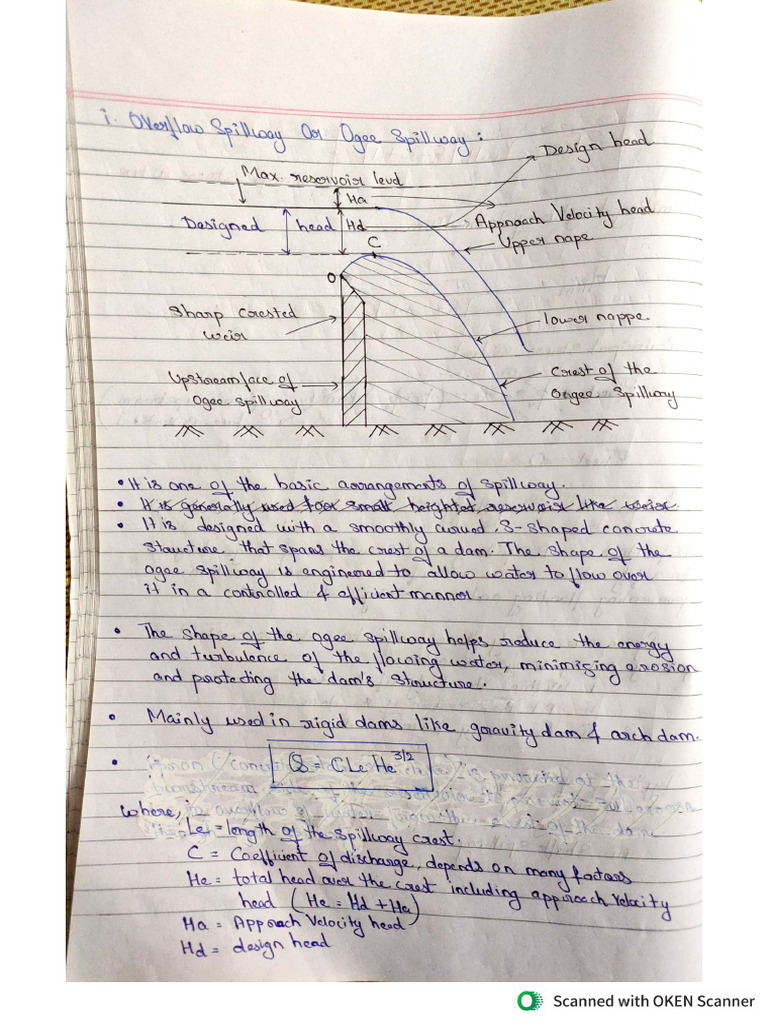 i. Overflow Spillway Or Ogee Spillway :
Design head
Max. reservoir level
Ha
Designed head
Hd
Approach Velocity head
C
Upper nape
O
Sharp Crested
weir
lower nappe
Upstream face of
Ogee spillway
Crest of the
Ongee Spillway
• It is one of the basic arrangements of spillway.
• It is generally used for small heighted, reservoir like weir.
• It is designed with a smoothly curved S-shaped concrete
structure that spans the crest of a dam. The shape of the
ogee spillway is engineered to allow water to flow over
it in a controlled & efficient manner.
• The shape of the ogee spillway helps reduce the energy
and turbulence of the flowing water, minimizing erosion
and protecting the dam's structure.
• Mainly used in rigid dams like gravity dam & arch dam.
• Q = CLe He^3/2
where,
Le = length of the spillway crest.
C = Coefficient of discharge, depends on many factors
He = total head over the crest including approach velocity
head (He = Hd + Ha)
Ha = Approach Velocity head
Hd = design head
Scanned with OKEN Scanner